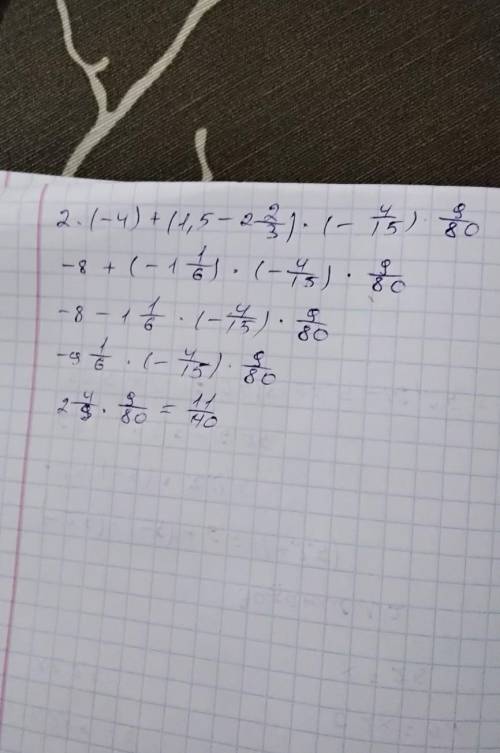 2·(-4)+(1,5-2 2/3)·(-4/15)·9/80
-8+(-1 1/6)·(-4/15)·9/80
-8-1 1/6·(-4/15)·9/80
-9 1/6·(-4/15)·9/80
2 4/9·9/80=11/40